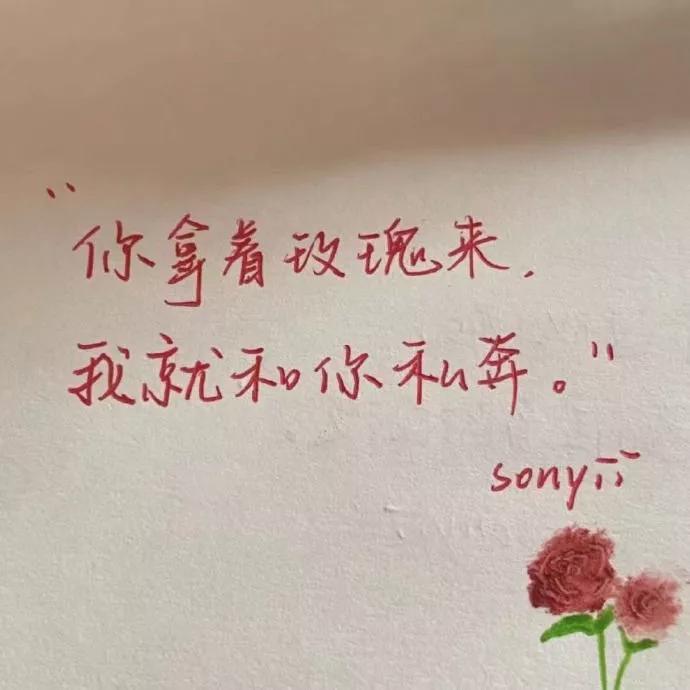 "你拿着玫瑰来,
我就和你私奔。"
sony